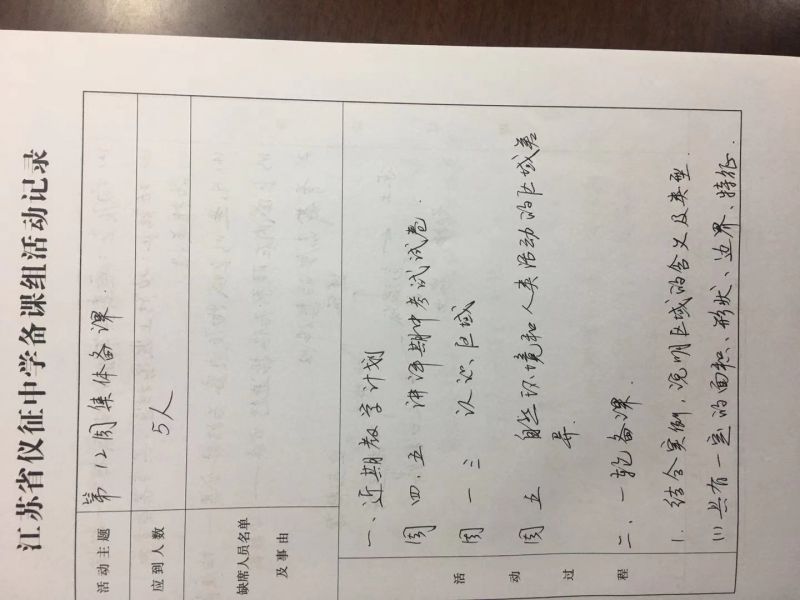 江苏省仪征中学备课组活动记录
活动主题 第12周集体备课
应到人数 5人
缺席人员名单
及事由
活动过程
一、近期教学计划
周四、五 讲评期中考试试卷.
周一二 认识区域
周五 自然环境和人类活动的区域差
异.
二、一轮备课.
1. 结合实例,说明区域的含义及类型.
(1)具有一定的面积、形状、边界、特征.